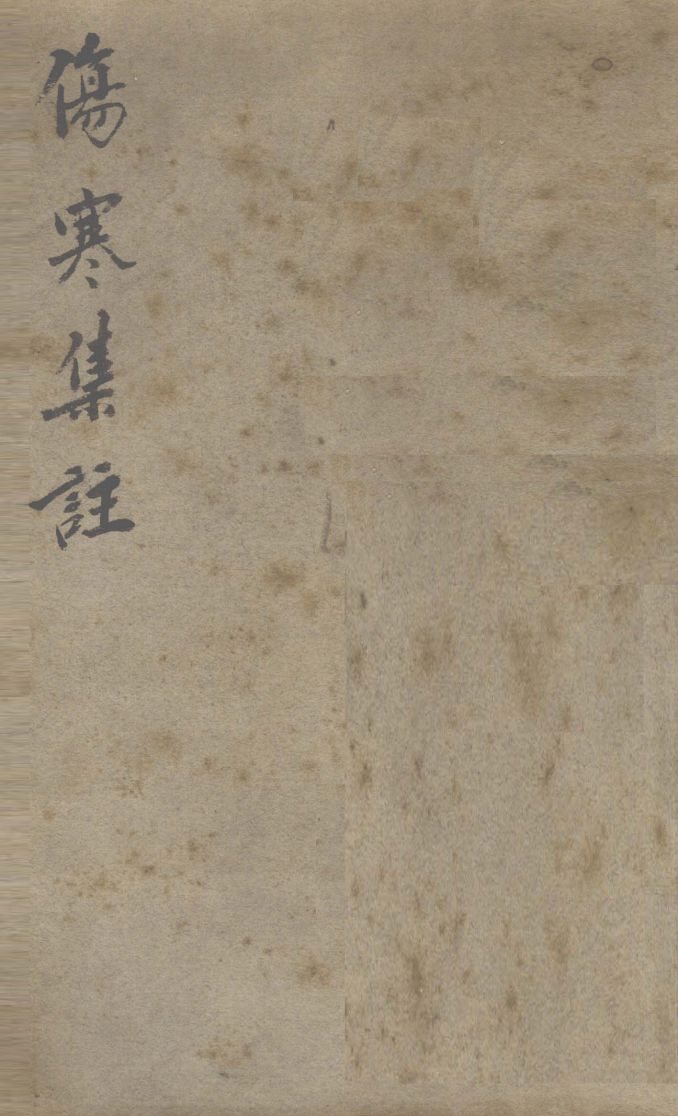 傷寒集註